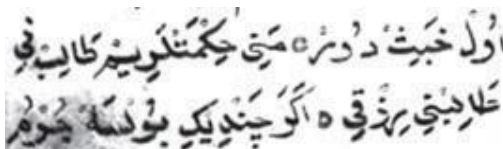 اُول خَبِيثْ دُورْ ٥ مَنِى حِكْمَتْلَرِيمْ طَالِبْ فِي
طَالِبْنِي بِرْزْقِي ٥ اَكَرْ چَنْدِيكِ بُولْسَهْ جُرْمُ